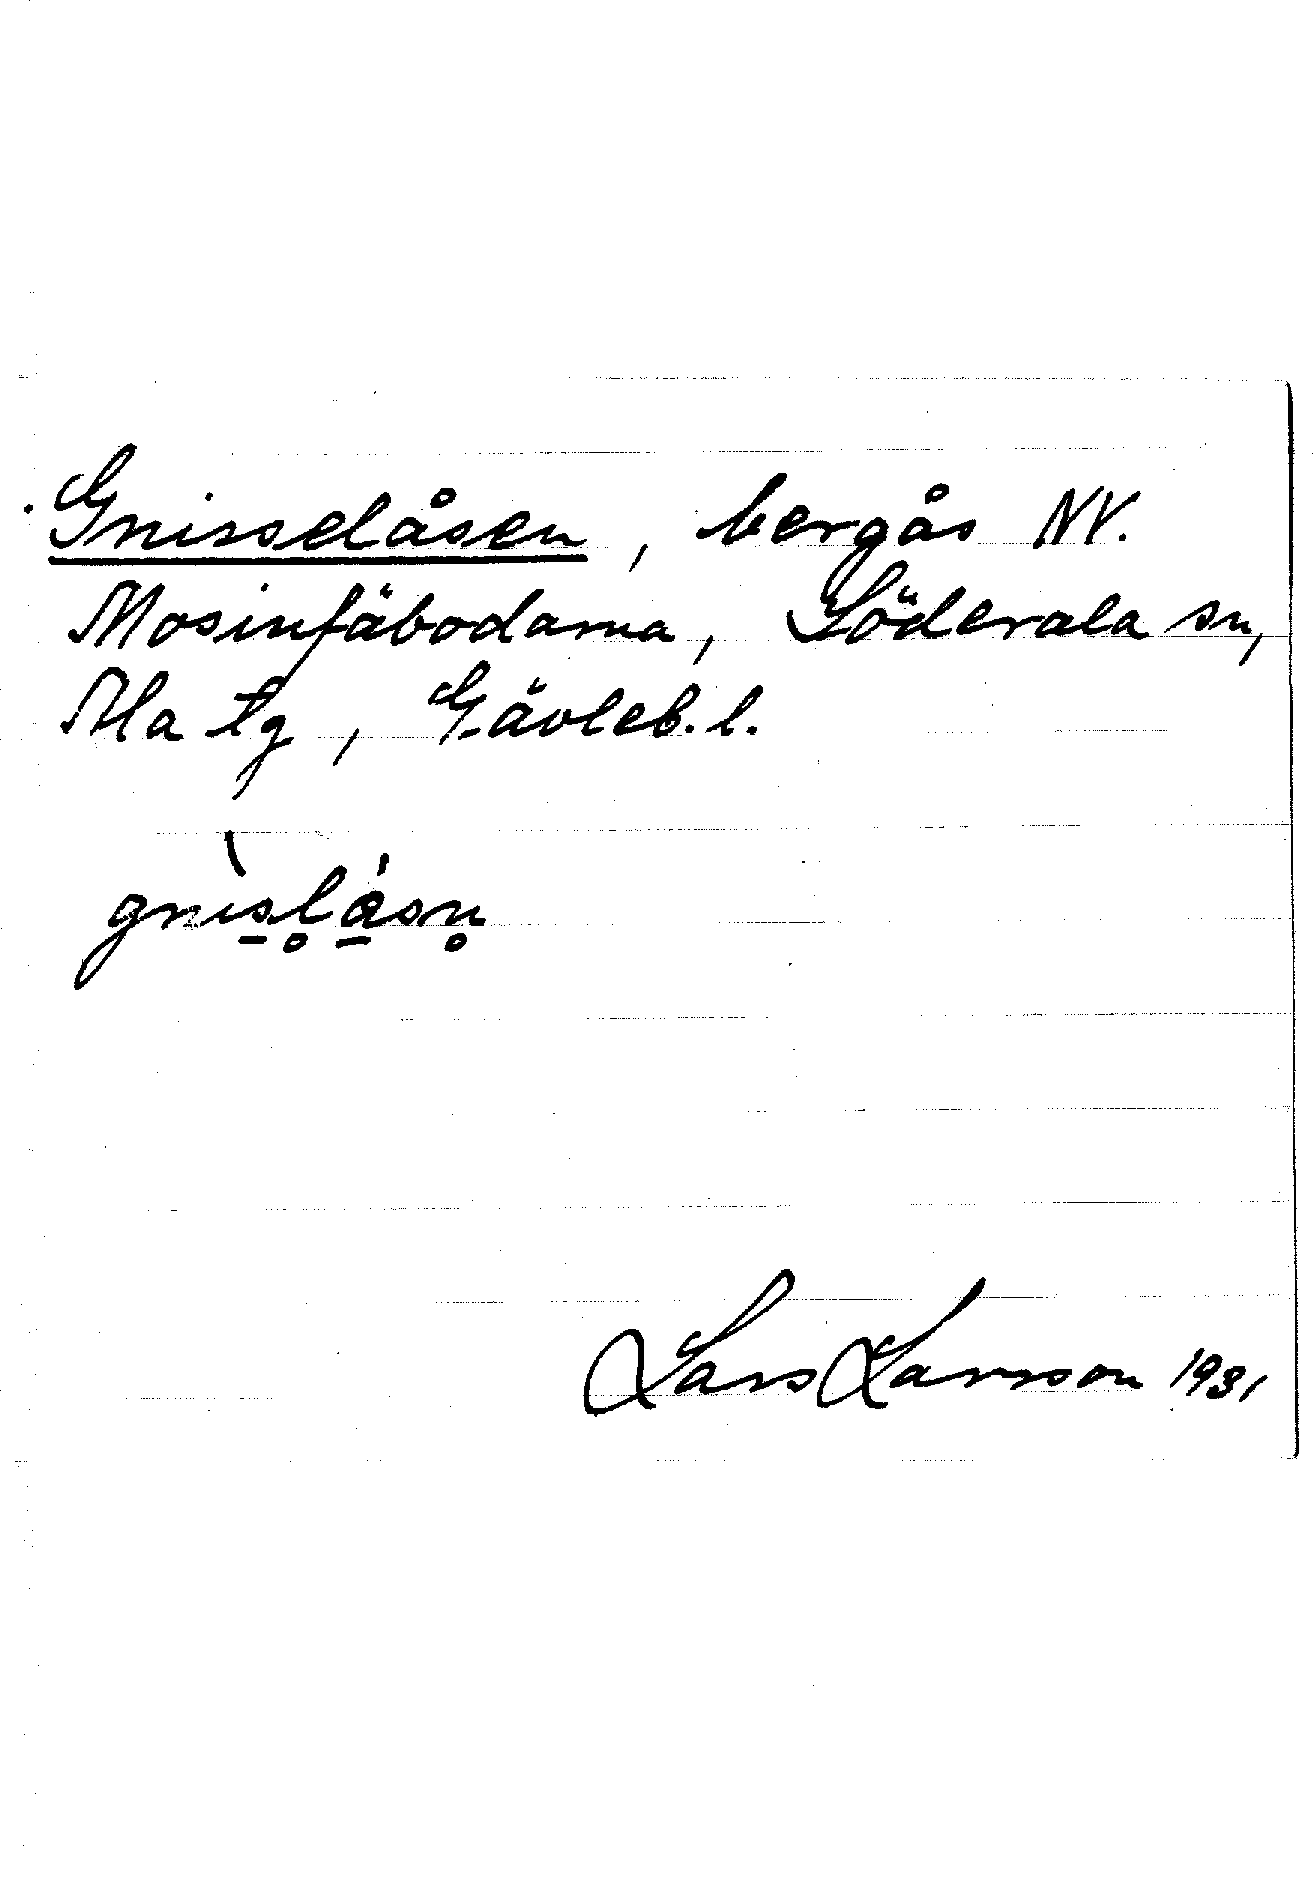 Gnisselåsen, bergås NV.
Mosinfäbodarna, Söderala sn,
Ala tg, Gävleb. l.
gnìs̠l̥ǻ̠sn̥
Lars Larsson 1931